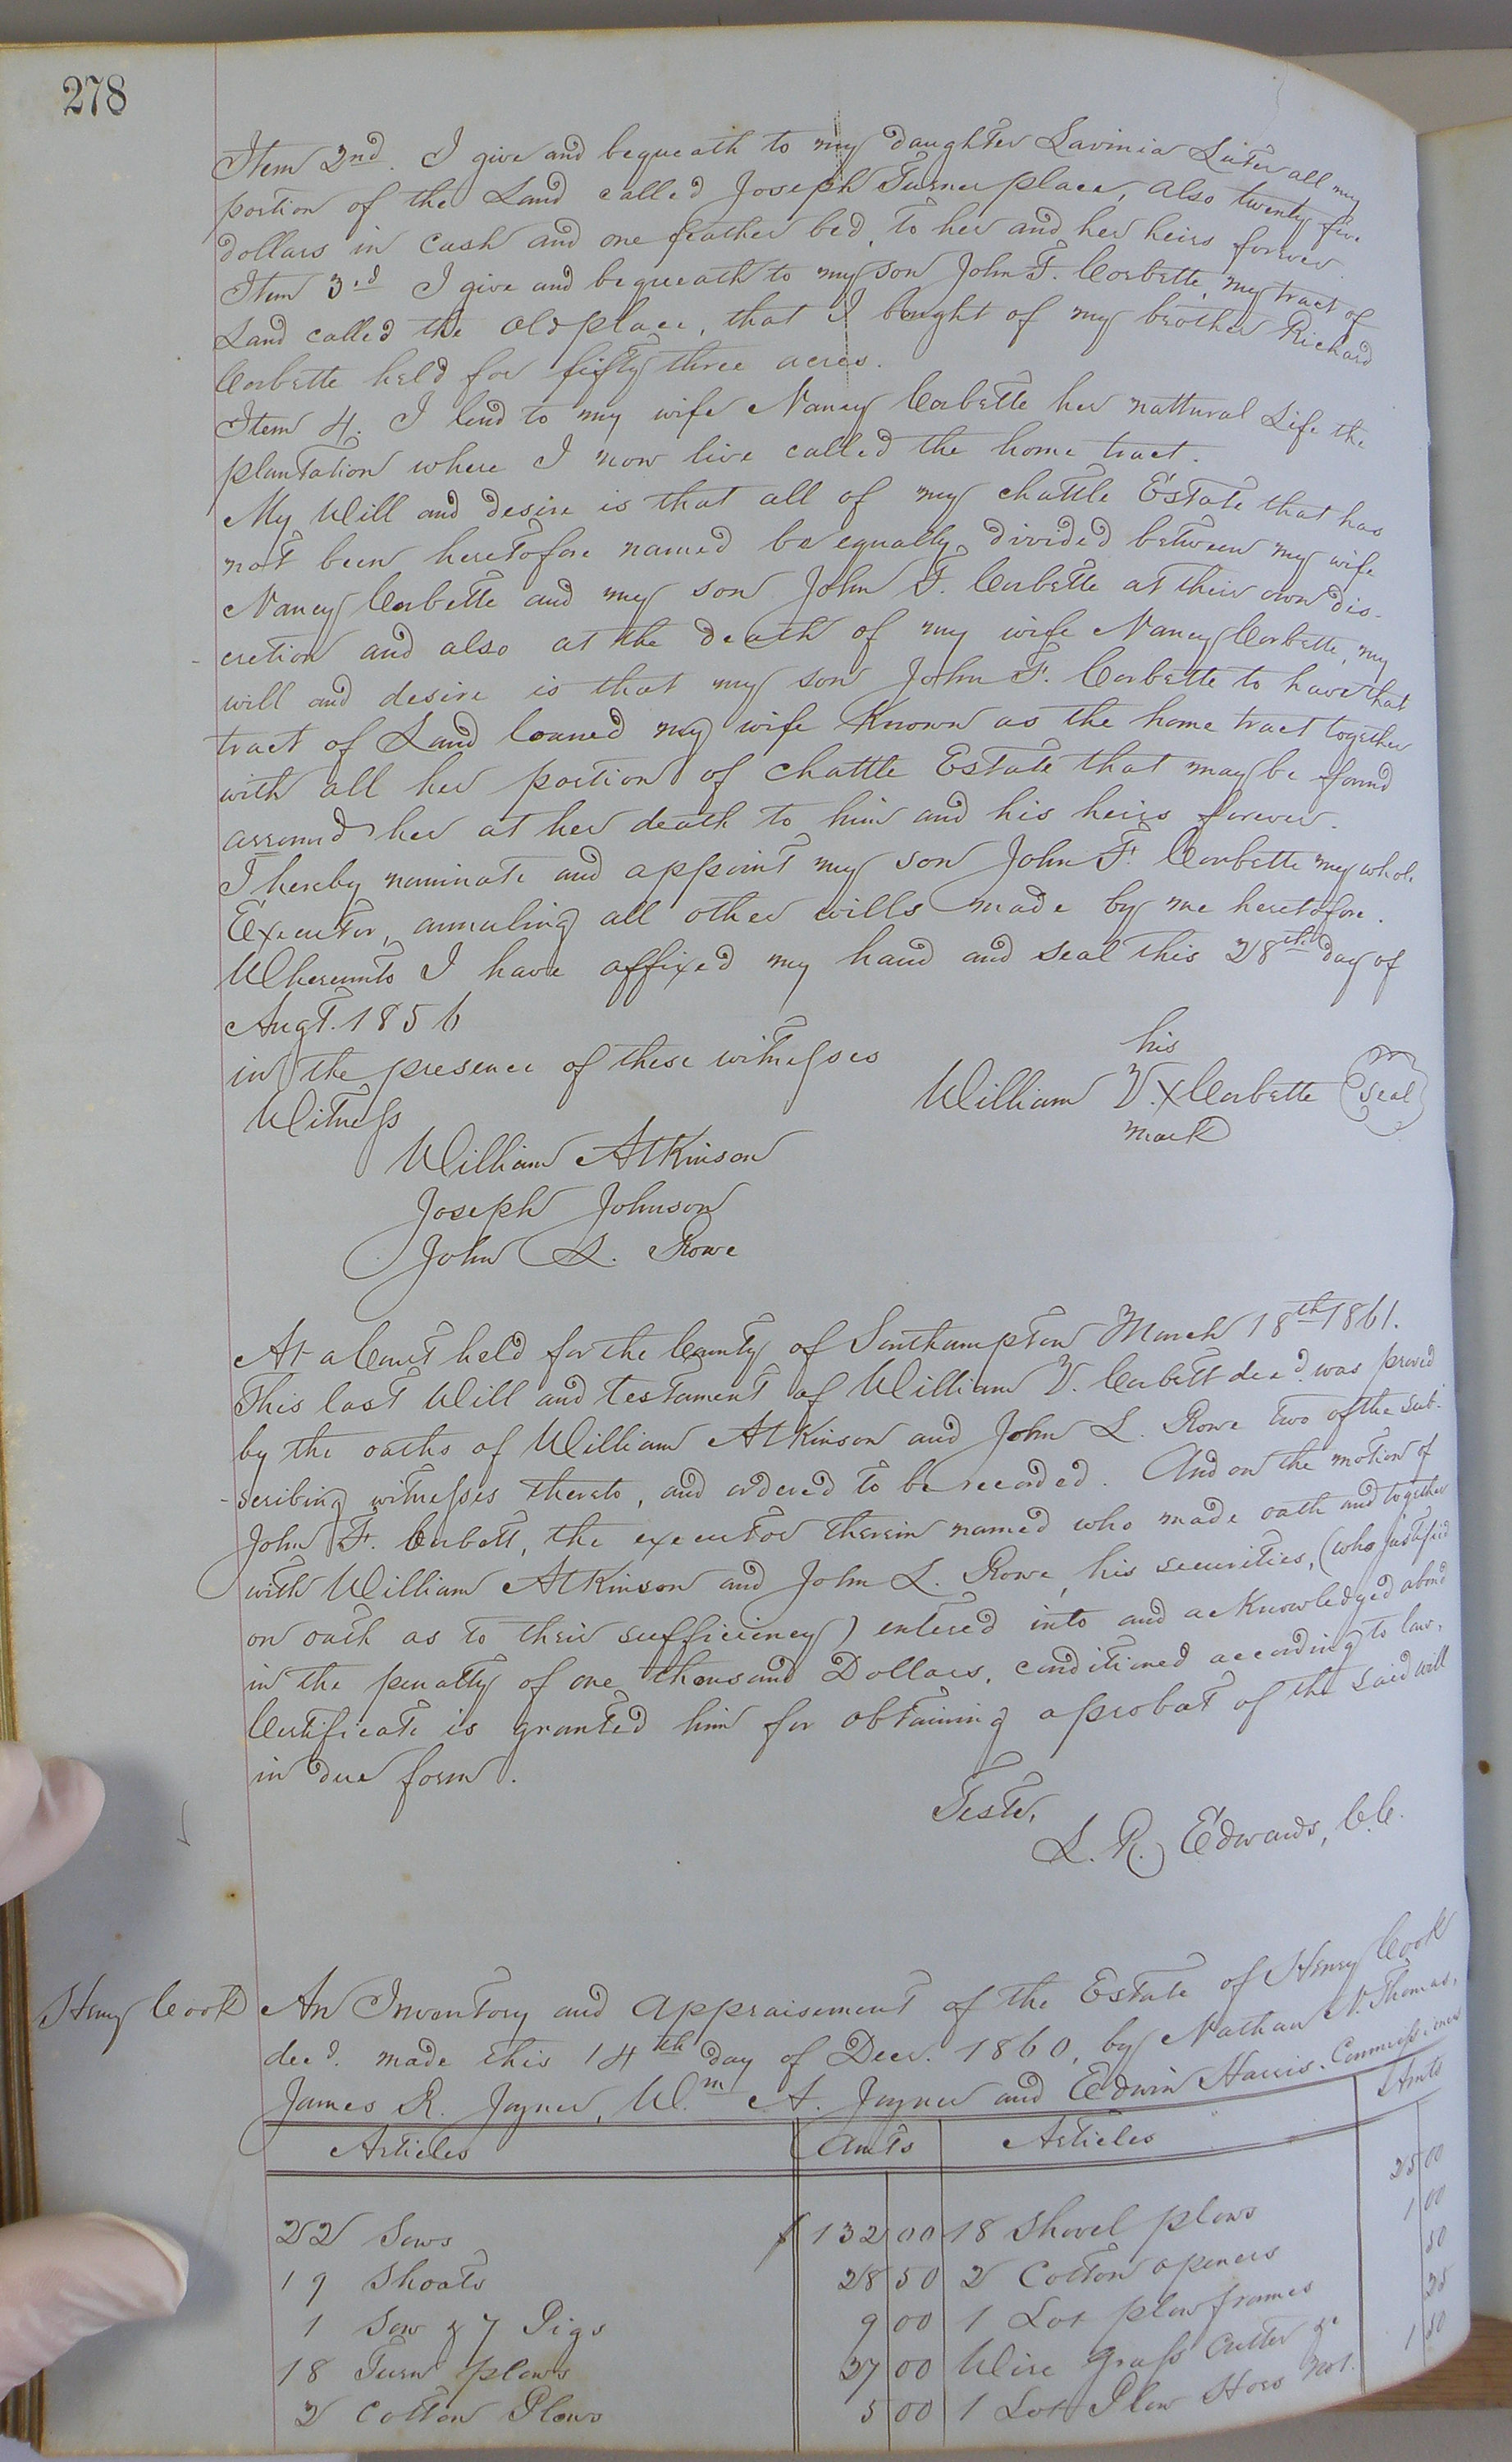 278
Item 2nd. I give and bequeath to my daughter Lavinia Luter all my
portion of the Land called Joseph Turner place, also twenty five
dollars in cash and one feather bed, to her and her heirs forever.
Item 3rd I give and bequeath to my son John F. Corbette, my tract of
Land called the old place, that I bought of my brother Richard
Corbette held for fifty three acres.
Item 4. I lend to my wife Nancy Corbette her nattural Life the
plantation where I now live called the home tract.
My Will and desire is that all of my chattle Estate that has
not been heretofore named be equally divided between my wife
Nancy Corbette and my son John F. Corbette at their own dis-
cretion and also at the death of my wife Nancy Corbette, my
will and desire is that my son John F. Corbette to have that
tract of Land loaned my wife Known as the home tract together
with all her portion of chattle Estate that may be found
arround her at her death to him and his heirs forever.
I hereby nominate and appoint my son John F. Corbette my whole
Executor, annuling all other wills made by me heretofore.
Whereunto I have affixed my hand and seal this 28th day of
Augt. 1856
in the presence of these witnesses
his
William V. x Corbette Seal
mark
Witness
William Atkinson
Joseph Johnson
John L. Rowe
At a Court held for the County of Southampton March 18th 1861.
This last Will and testament of William V. Corbett decd. was proved
by the oaths of William Atkinson and John L. Rowe two of the sub-
-scribing witnesses thereto, and ordered to be recorded. And on the motion of
John F. Corbett, the executor therein named who made oath and together
with William Atkinson and John L. Rowe, his securities, (who justified
on oath as to their sufficiency) entered into and acknowledged a bond
in the penalty of one thousand Dollars, conditioned according to law,
Certificate is granted him for obtaining a probat of the said will
in due form.
Teste,
L. R. Edwards, C.C.
Henry Cook
An Inventory and appraisement of the Estate of Henry Cook
decd. made this 14th day of Decr. 1860, by Nathan N. Thomas,
James R. Joyner, Wm. A. Joyner and Edwin Harris. Commissioners
Articles Amts Articles Amts
22 Sows $ 132 00 18 Shovel plows 25 00
19 Shoats 28 50 2 Cotton openers 1 00
1 Sow & 7 Pigs 9 00 1 Lot plow frames 50
18 Turn plows 27 00 Wire Grass Cutter &c 25
2 Cotton Plows 5 00 1 Lot Plow Hoes No 1. 1 50